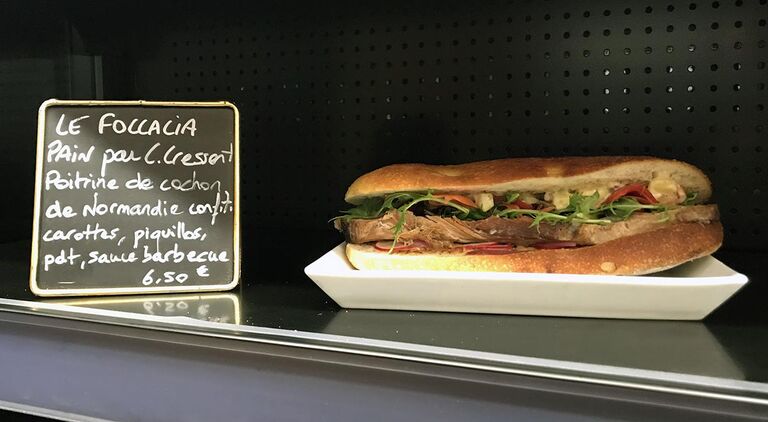 LE FOCCACIA
PAIN par C. Cressent
Poitrine de cochon
de Normandie confit
carottes, piquillos,
pdt, sauce barbecue
6,50 €